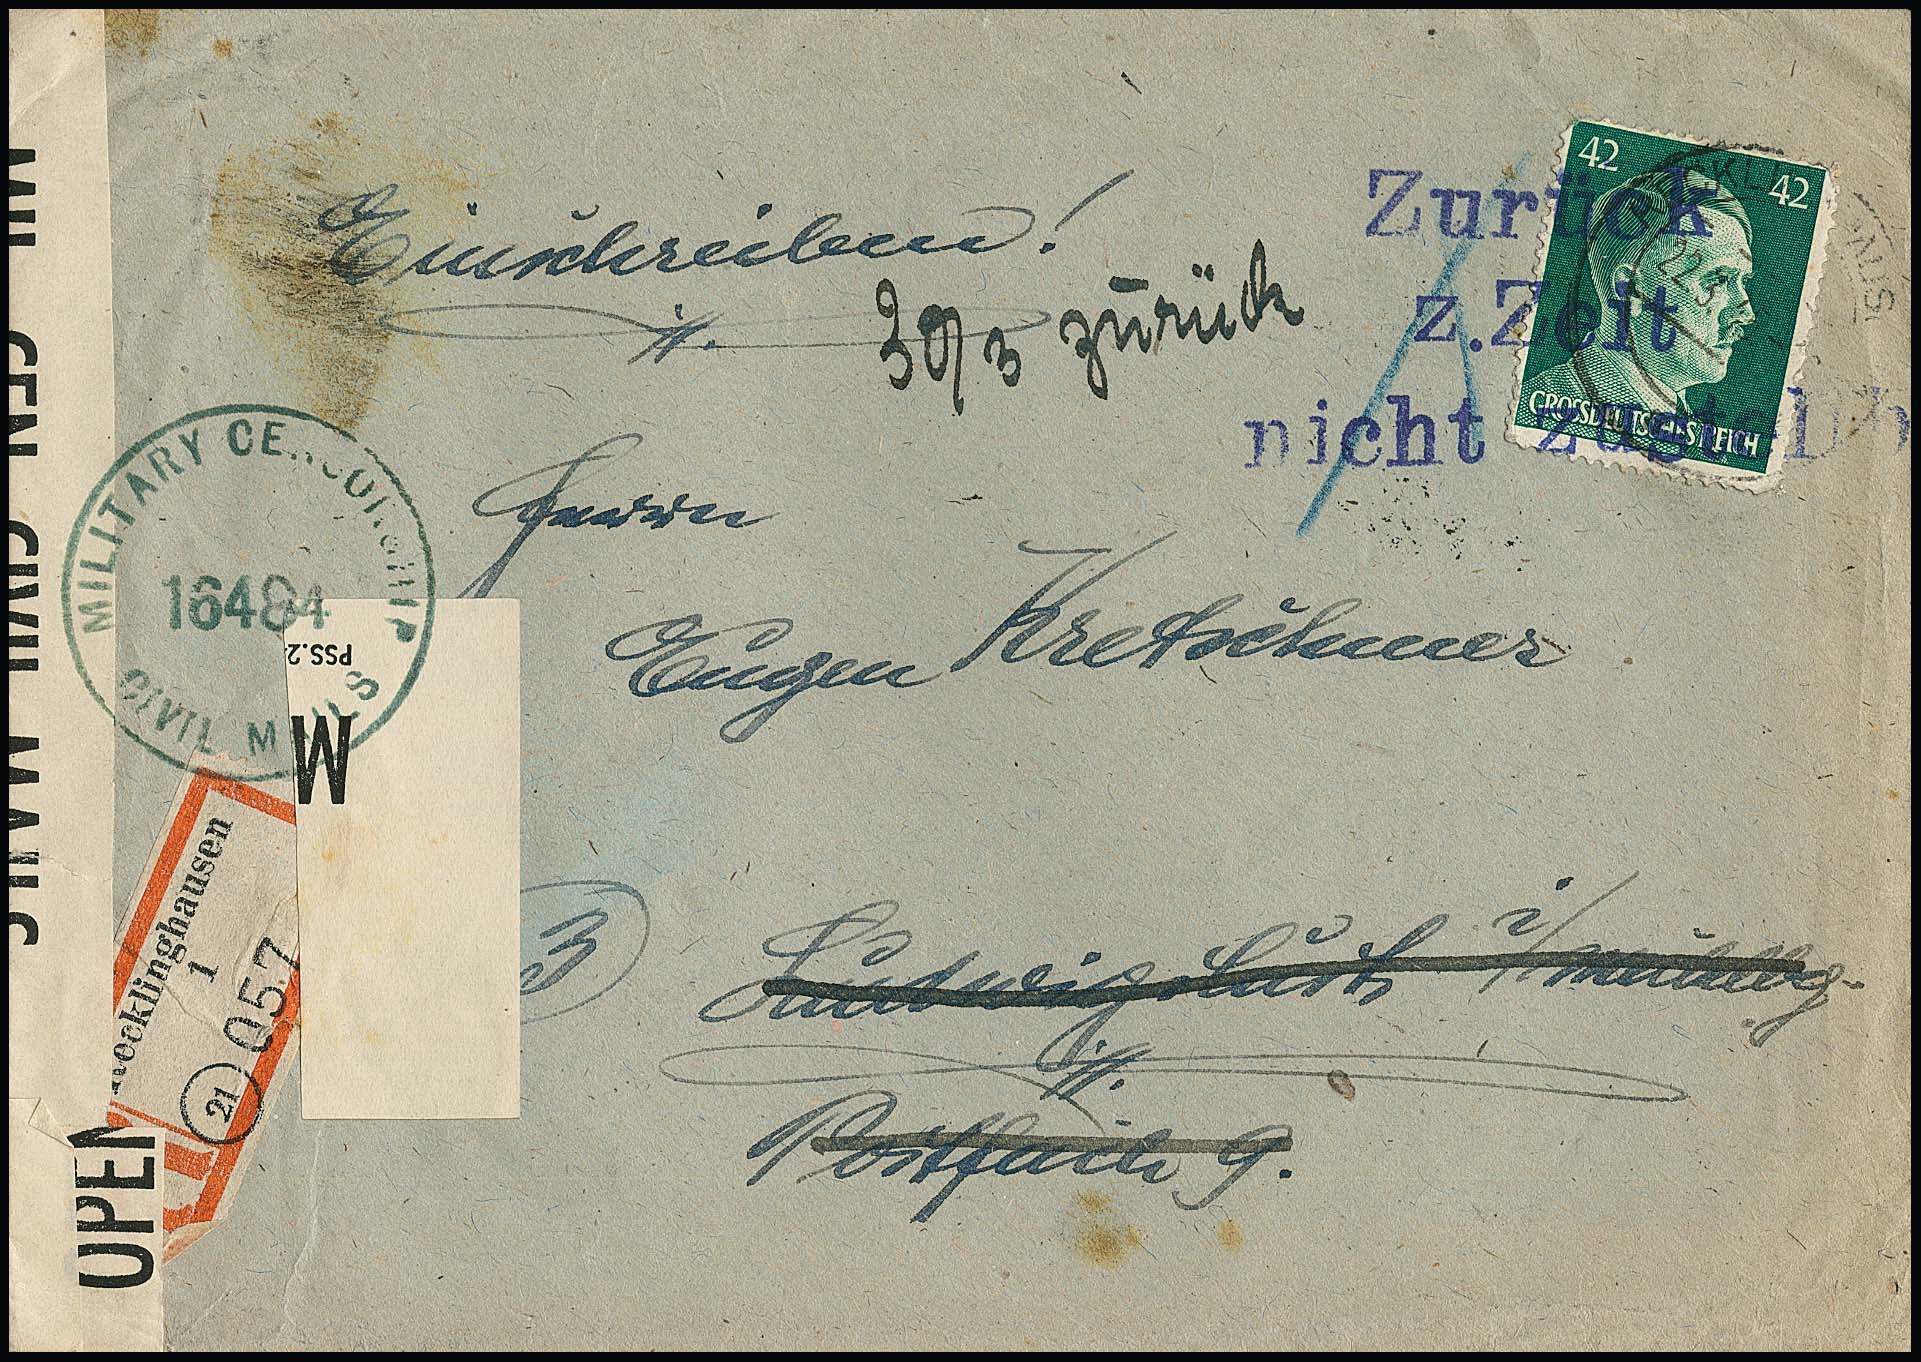 Einschreiben!
Zurück
z.Zeit
nicht
30/3 zurück
42 42
22.3
GROSSDEUTSCHES REICH
MILITARY CENSORSHIP
16484
CIVIL MAILS
Herrn
Eugen Kretschmer
PSS.2
M
Recklinghausen
1
057
21
3
Ludwigslust i/Mecklbg.
Postfach 9.
MIL. CEN. CIVIL MAILS
OPEN